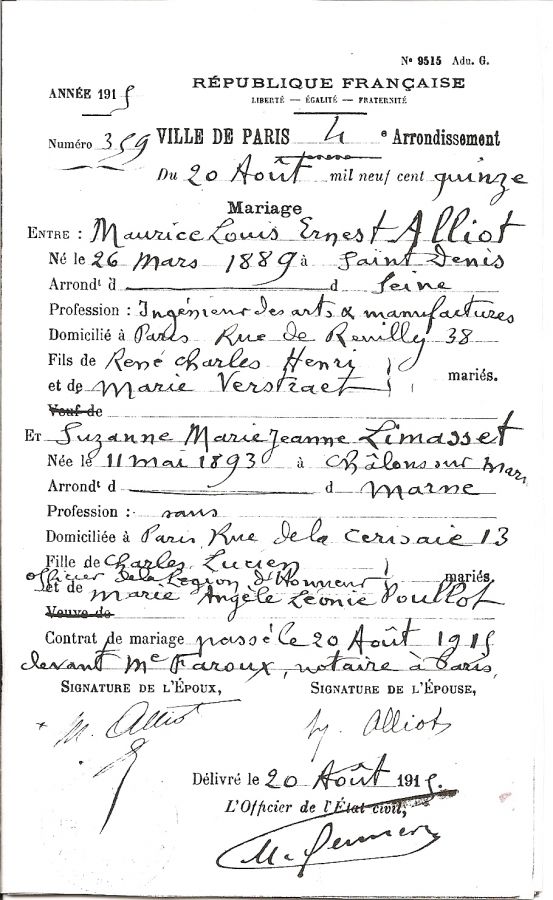 Nº 9515 Adu. G.
RÉPUBLIQUE FRANÇAISE
ANNÉE 1915
LIBERTÉ — ÉGALITÉ — FRATERNITÉ
Numéro 359 VILLE DE PARIS 4 e Arrondissement
Du 20 Août mil neuf cent quinze
Mariage
ENTRE : Maurice Louis Ernest Alliot
Né le 26 Mars 1889 à Saint Denis
Arrondt d d Seine
Profession : Ingénieur des arts & manufactures
Domicilié à Paris Rue de Reuilly 38
Fils de René Charles Henri
et de Marie Verstraet mariés.
Veuf de
ET Suzanne Marie Jeanne Limasset
Née le 11 mai 1893 à Châlons sur Marne
Arrondt d d Marne
Profession : sans
Domiciliée à Paris Rue de la Cerisaie 13
Fille de Charles Lucien
officier de la Légion d'Honneur mariés
et de Marie Angèle Léonie Poullot
Veuve de
Contrat de mariage passé le 20 Août 1915
devant Me Faroux, notaire à Paris,
SIGNATURE DE L'ÉPOUX, SIGNATURE DE L'ÉPOUSE,
M. Alliot Alliot
Délivré le 20 Août 1915.
L'Officier de l'État civil,